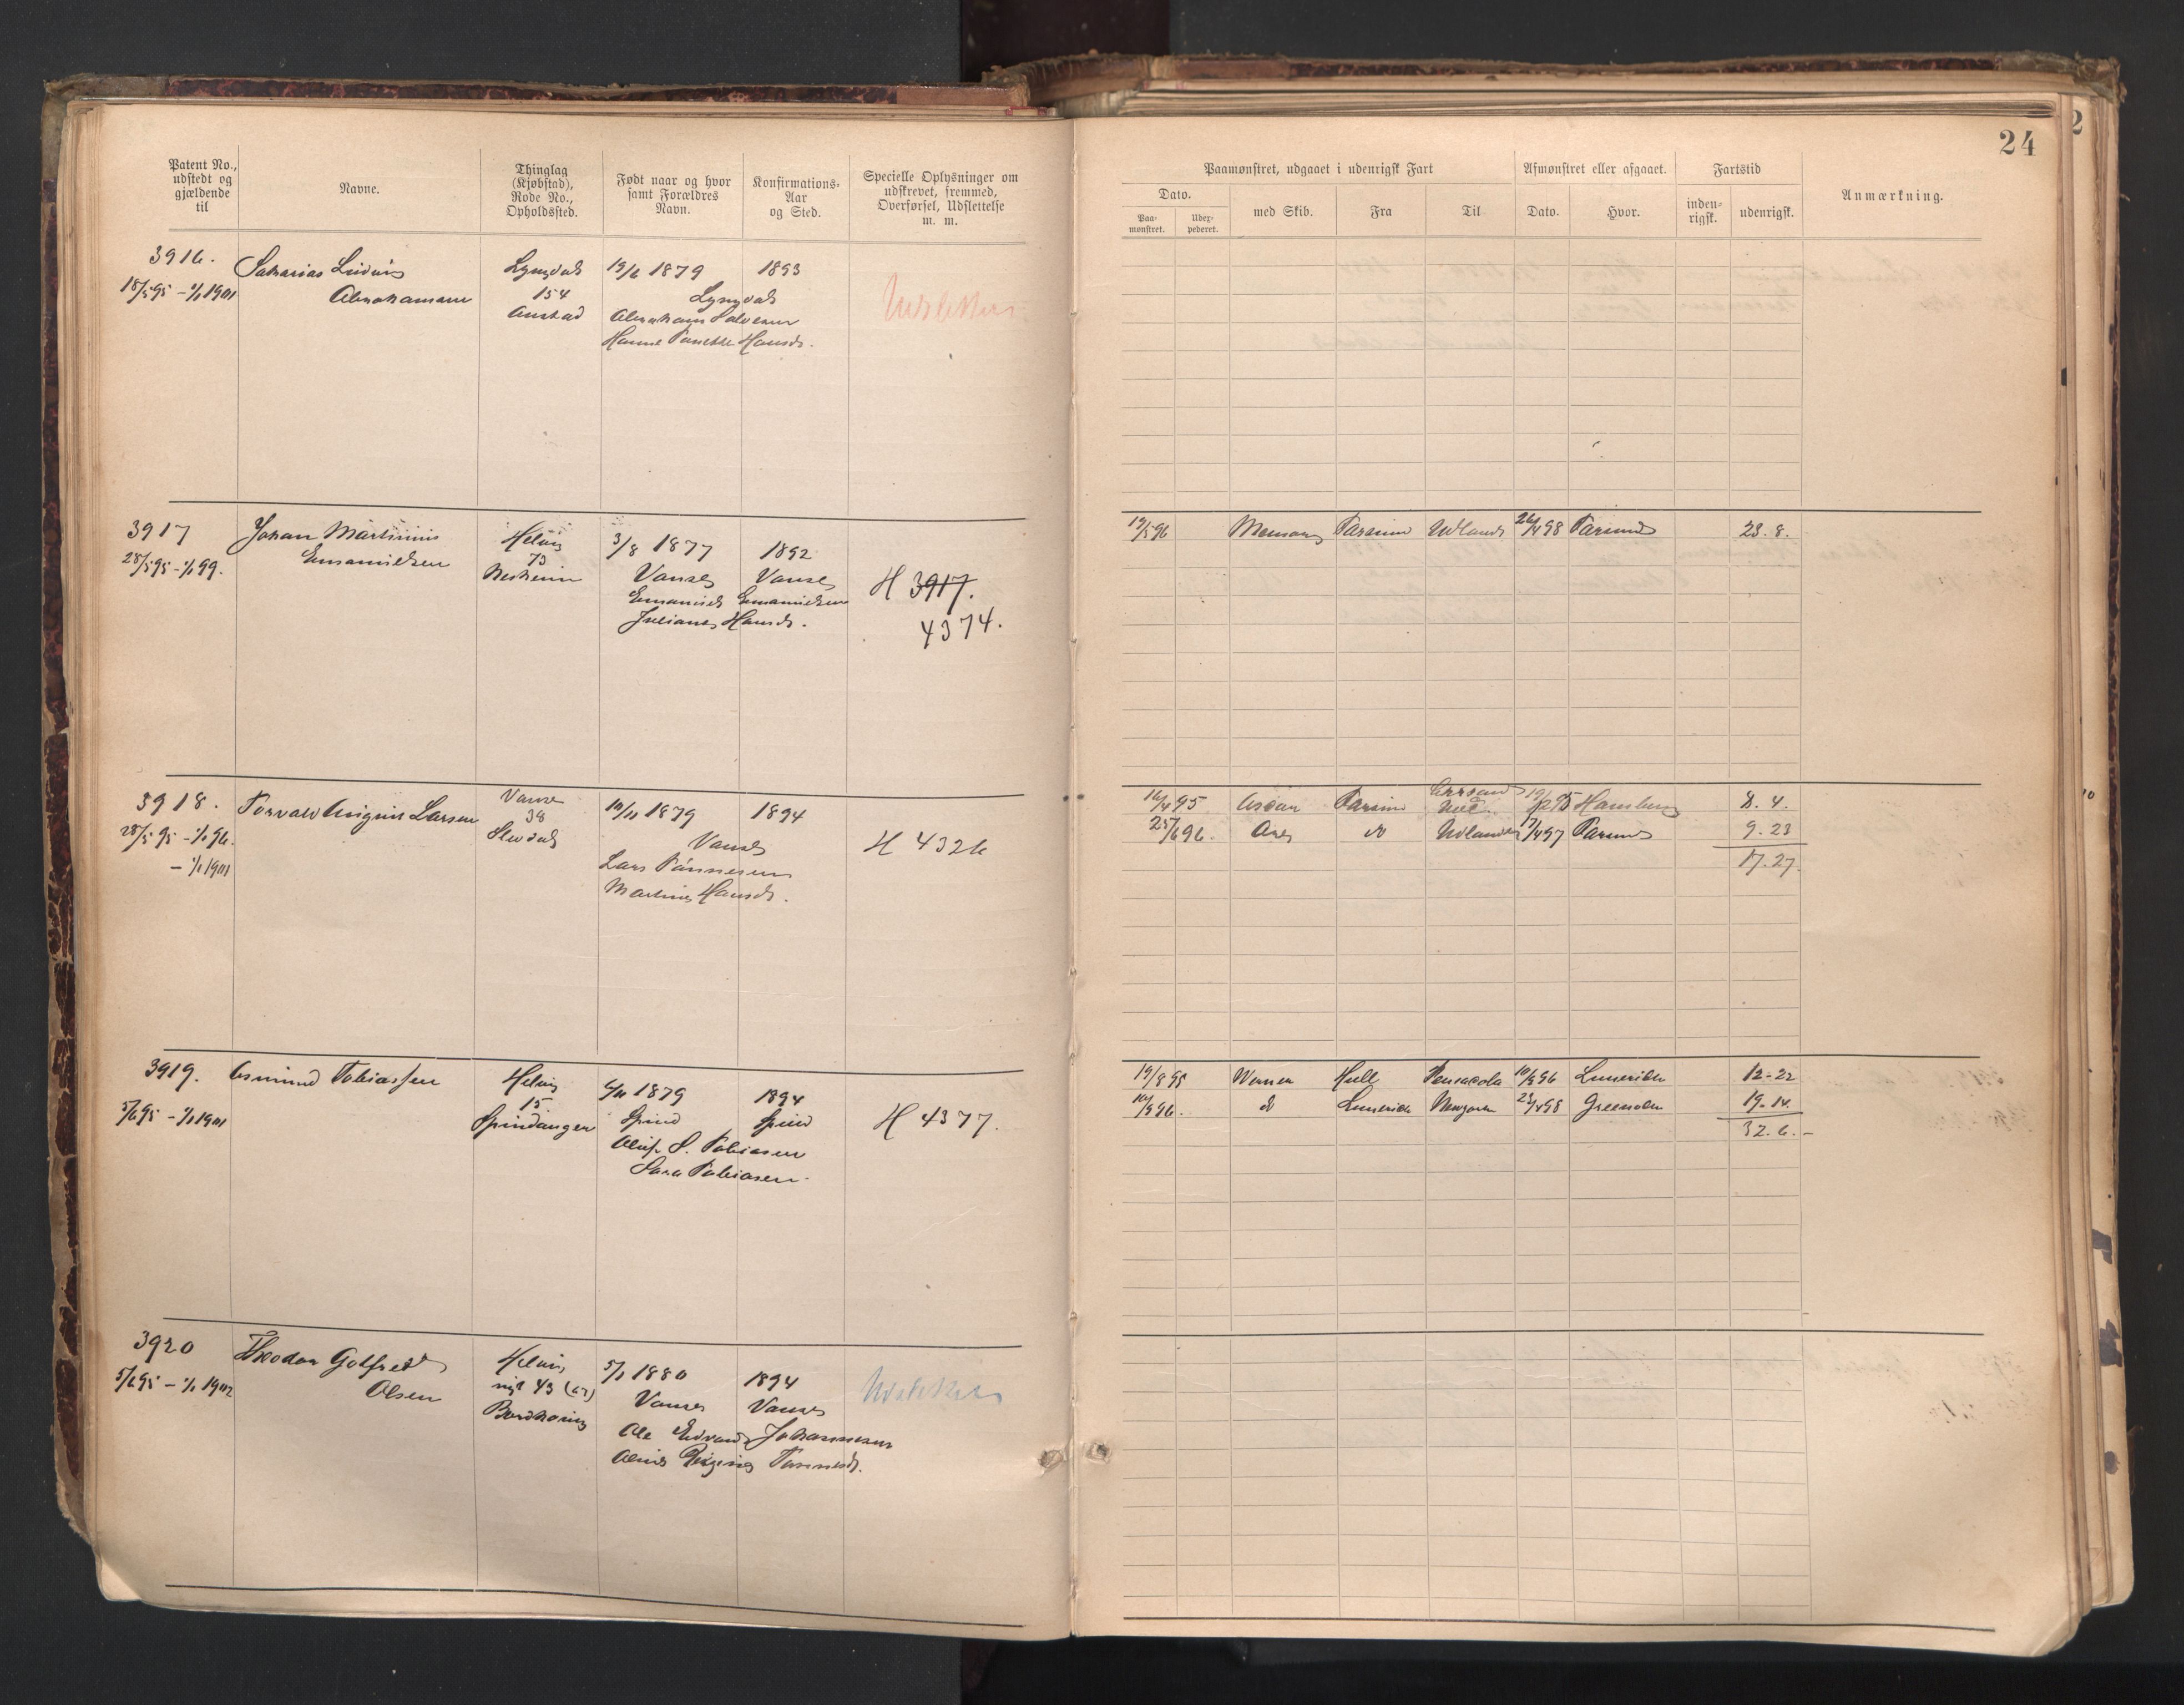 24
Patent No.,
udstedt og
gjældende
til
Navne.
Thinglag
(Kjøbstad),
Rode No.,
Opholdssted.
Født naar og hvor
samt Forældres
Navn.
Konfirmations-
Aar
og Sted.
Specielle Oplysninger om
udskrevet, fremmed,
Overførsel, Udslettelse
m. m.
Paamønstret, udgaaet i udenrigsk Fart
Dato.
Paa-
mønstret.
Udex-
pederet.
med Skib.
Fra
Til
Afmønstret eller afgaaet.
Dato.
Hvor.
Fartstid
inden-
rigsk.
udenrigsk.
Anmærkning.
3916.
18/5 95 – 1/1 1901
Sakarias Ludvig
Abrahamsen
Lyngdal
154
Austad
19/6 1879
Lyngdal
Abraham Salvesen
Hanne Hansd.
1893
Udslettes
3917
28/5 95 – 1/1 99.
Johan Martinius
Emanuelsen
Helvig
73
3/8 1877
Vanse
Emanuel Emanuelsen
Juliane Hansd.
1892
Vanse
H 3917.
4374.
19/5 96
Farsund
Udlandet
26/4 98
Farsund
23. 8.
3918.
28/5 95 – 1/1 96.
– 1/1 1901
Torvald Larsen
Vanse
38
10/11 1879
Vanse
Lars Tønnesen
Martine Hansd.
1894
H 4326
16/4 95
Oscar
Farsund
Hamburg
8. 4.
25/6 96.
do
Udlandet
7/4 97
Farsund
9. 23
17. 27.
3919.
5/6 95 – 1/1 1901
Osmund Tobiassen
Helvig
15
Spindanger
6/11 1879
Spind
S. Tobiasen
Sara Tobiasen
1894
Spind
H 4377.
19/8 95
Werner
Hull
Pensacola
10/9 96
12-22
10/9 96.
do
23/4 98
19. 14.
32. 6. –
3920
5/6 95 – 1/1 1902
Theodor Gotfred
Olsen
Helvig
43
5/1 1880
Vanse
Ole Edvard Johannesen
Tønnesd.
1894
Vanse
Udslettes